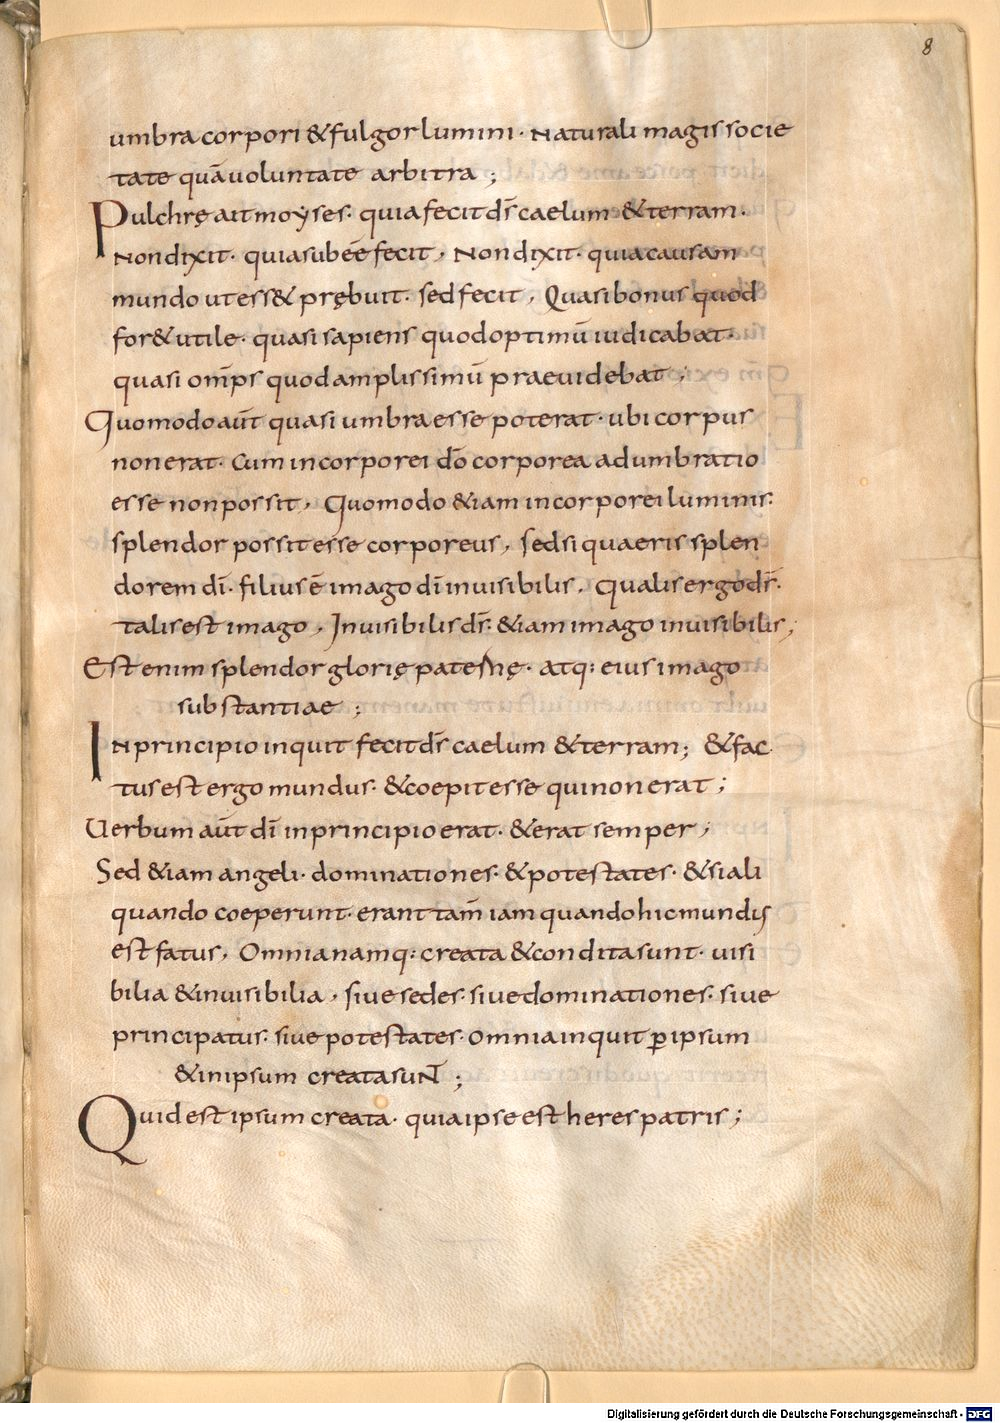 8
umbra corpori & fulgor lumini· Naturali magis socie
tate quā uoluntate arbitra;
Pulchrę ait moyses· quia fecit d̄s caelum & terram·
Non dixit· quia sub ēē fecit, Non dixit· quia causam
mundo ut ess& prębuit· sed fecit, Quasi bonus quod
for& utile· quasi sapiens quod optimū iudicabat·
quasi om̄ps quod amplissimū praeuidebat;
Quomodo aūt quasi umbra esse poterat· ubi corpus
non erat· Cum incorporei d̄o corporea adumbratio
esse non possit, Quomodo &iam incorporei luminis·
splendor possit esse corporeus, sed si quaeris splen
dorem d̄i· filius ē imago d̄i inuisibilis, Qualis ergo d̄s·
talis est imago, Inuisibilis d̄s· &iam imago inuisibilis;
Est enim splendor glorię paternę· atq: eius imago
substantiae;
In principio inquit fecit d̄s caelum & terram; & fac
tus est ergo mundus· & coepit esse qui non erat;
Uerbum aūt d̄i in principio erat· & erat semper;
Sed &iam angeli· dominationes· & potestates· & si ali
quando coeperunt· erant tam̄ iam quando hic mundus
est fatus, Omnia namq: creata & condita sunt· uisi
bilia & inuisibilia, siue sedes· siue dominationes· siue
principatus· siue potestates· omnia inquit ꝑ ipsum
& in ipsum creata sunt;
Quid est ipsum creata· quia ipse est heres patris;
Digitalisierung gefördert durch die Deutsche Forschungsgemeinschaft - DFG